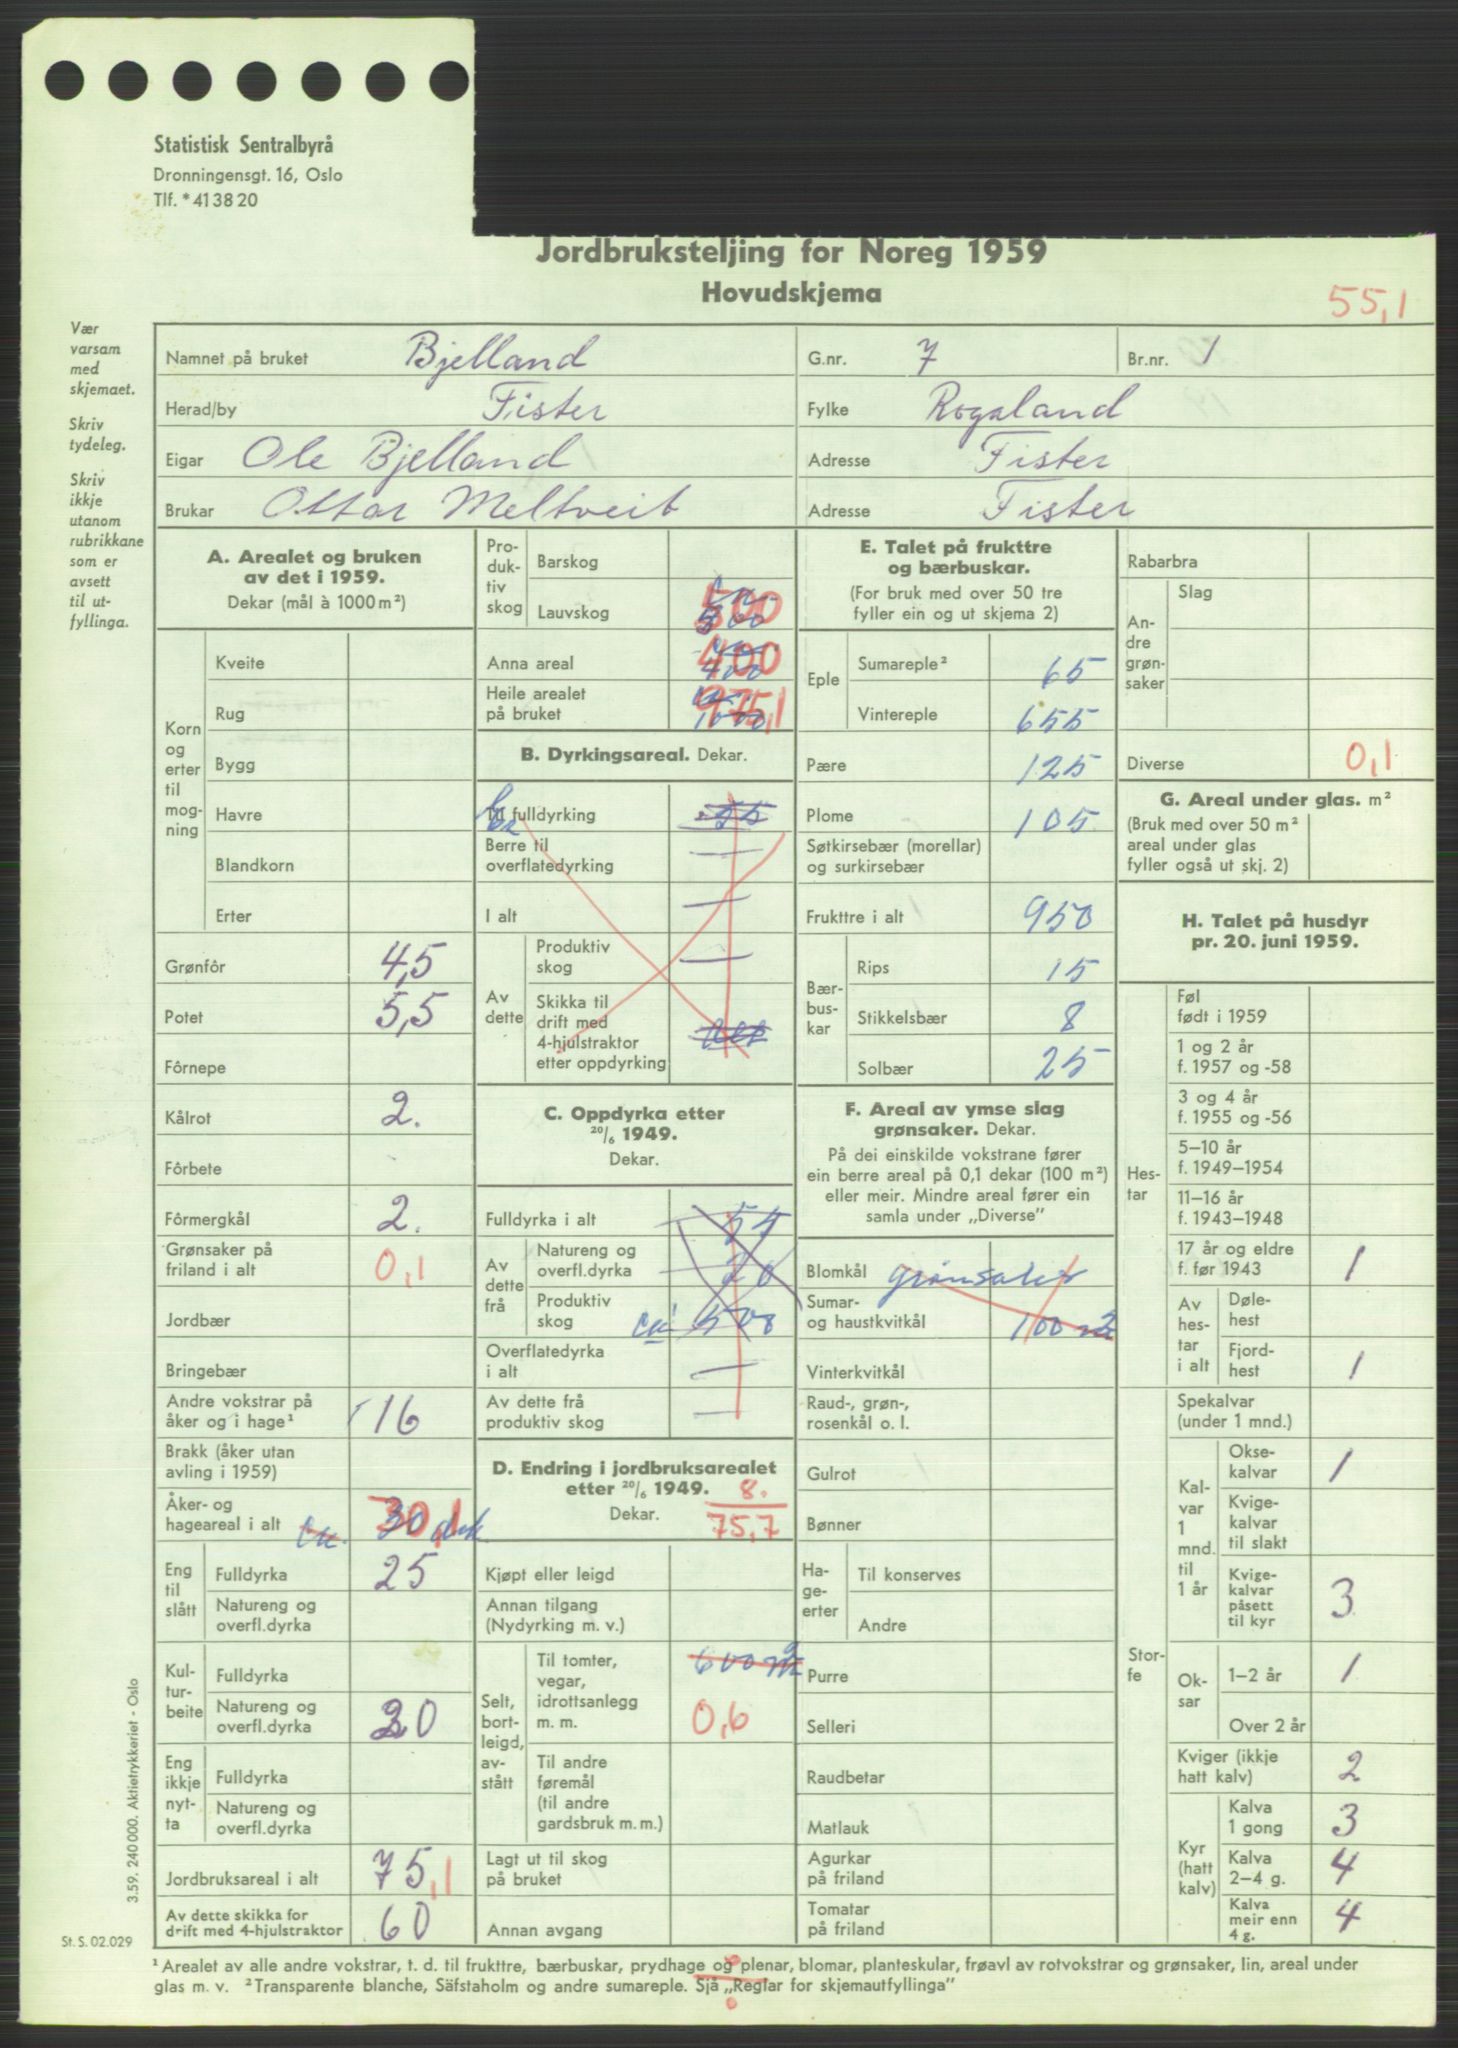 Statistisk Sentralbyrå
Dronningensgt. 16, Oslo
Tlf. * 41 38 20
Jordbruksteljing for Noreg 1959
Hovudskjema
55,1
Vær
varsam
med
skjemaet.
Skriv
tydeleg.
Skriv
ikkje
utanom
rubrikkane
som er
avsett
til ut-
fyllinga.
Namnet på bruket Bjelland G.nr. 7 Br.nr. 1
Herad/by Fister Fylke Rogaland
Eigar Ole Bjelland Adresse Fister
Brukar Ottar Meltveit Adresse Fister
A. Arealet og bruken
av det i 1959.
Dekar (mål à 1000 m²)
Korn
og
erter
til
mog-
ning
Kveite
Rug
Bygg
Havre
Blandkorn
Erter
Grønfôr 4,5
Potet 5,5
Fôrnepe
Kålrot 2.
Fôrbete
Fôrmergkål 2.
Grønsaker på
friland i alt 0,1
Jordbær
Bringebær
Andre vokstrar på
åker og i hage¹ 16
Brakk (åker utan
avling i 1959)
Åker- og
hageareal i alt ca. 30,1 dek
Eng
til
slått
Fulldyrka 25
Natureng og
overfl.dyrka
Kul-
tur-
beite
Fulldyrka
Natureng og
overfl.dyrka 20
Eng
ikkje
nyt-
ta
Fulldyrka
Natureng og
overfl.dyrka
Jordbruksareal i alt 75,1
Av dette skikka for
drift med 4-hjulstraktor 60
Pro-
duk-
tiv
skog
Barskog
Lauvskog 500
Anna areal 400
Heile arealet
på bruket 975,1
B. Dyrkingsareal. Dekar.
Til fulldyrking 55
Berre til
overflatedyrking —
I alt —
Av
dette
Produktiv
skog —
Skikka til
drift med
4-hjulstraktor
etter oppdyrking
C. Oppdyrka etter
20/6 1949.
Dekar.
Fulldyrka i alt 55
Av
dette
frå
Natureng og
overfl.dyrka 20
Produktiv
skog ca
Overflatedyrka
i alt —
Av dette frå
produktiv skog —
D. Endring i jordbruksarealet
etter 20/6 1949. 8.
Dekar. 75,7
Kjøpt eller leigd
Annan tilgang
(Nydyrking m. v.)
Selt,
bort-
leigd,
av-
stått
Til tomter,
vegar,
idrottsanlegg
m. m. 600 m² 0,6
Til andre
føremål
(til andre
gardsbruk m. m.)
Lagt ut til skog
på bruket
Annan avgang
E. Talet på frukttre
og bærbuskar.
(For bruk med over 50 tre
fyller ein og ut skjema 2)
Eple
Sumareple² 65
Vintereple 655
Pære 125
Plome 105
Søtkirsebær (morellar)
og surkirsebær
Frukttre i alt 950
Bær-
bus-
kar
Rips 15
Stikkelsbær 8
Solbær 25
F. Areal av ymse slag
grønsaker. Dekar.
På dei einskilde vokstrane fører
ein berre areal på 0,1 dekar (100 m²)
eller meir. Mindre areal fører ein
samla under „Diverse”
Blomkål grønsaker
Sumar-
og haustkvitkål 100 m²
Vinterkvitkål
Raud-, grøn-,
rosenkål o. l.
Gulrot
Bønner
Ha-
ge-
erter
Til konserves
Andre
Purre
Selleri
Raudbetar
Matlauk
Agurkar
på friland
Tomatar
på friland
Rabarbra
An-
dre
grøn-
saker
Slag
Diverse 0,1
G. Areal under glas. m²
(Bruk med over 50 m²
areal under glas
fyller også ut skj. 2)
H. Talet på husdyr
pr. 20. juni 1959.
Hes-
tar
Føl
født i 1959
1 og 2 år
f. 1957 og -58
3 og 4 år
f. 1955 og -56
5–10 år
f. 1949–1954
11–16 år
f. 1943–1948
17 år og eldre
f. før 1943 1
Av
hes-
tar
i alt
Døle-
hest
Fjord-
hest 1
Stor-
fe
Spekalvar
(under 1 mnd.)
Kal-
var
1
mnd.
til
1 år
Okse-
kalvar 1
Kvige-
kalvar
til slakt
Kvige-
kalvar
påsett
til kyr 3
Ok-
sar
1–2 år 1
Over 2 år
Kviger (ikkje
hatt kalv) 2
Kyr
(hatt
kalv)
Kalva
1 gong 3
Kalva
2–4 g. 4
Kalva
meir enn
4 g. 4
3.59. 240 000. Aktietrykkeriet - Oslo
St. S. 02.029
¹ Arealet av alle andre vokstrar, t. d. til frukttre, bærbuskar, prydhage og plenar, blomar, planteskular, frøavl av rotvokstrar og grønsaker, lin, areal under
glas m. v. ² Transparente blanche, Säfstaholm og andre sumareple. Sjå „Reglar for skjemautfyllinga”